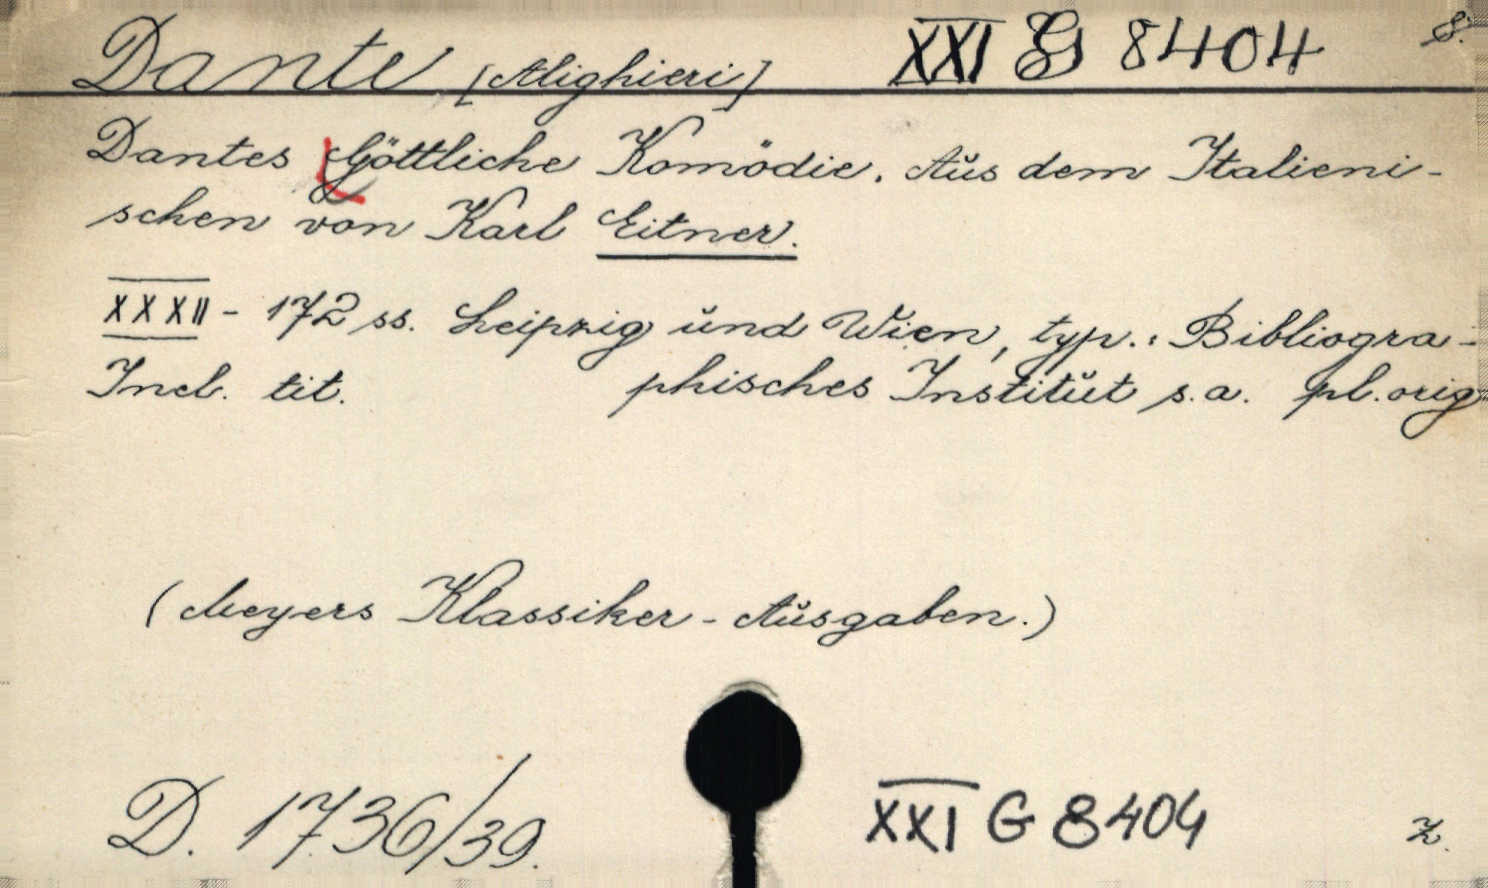 Dante [Alighieri] XXI G 8404 8.
Dantes Göttliche Komödie. Aŭs dem Italieni-
schen von Karl Eitner.
XXXII - 172 ss. Leipzig ŭnd Wien, typ.: Bibliogra-
Incl. tit. phisches Institŭt s.a. pl. orig
(Meyers Klassiker-Aŭsgaben.)
D. 1736/39. XXI G 8404 Z.